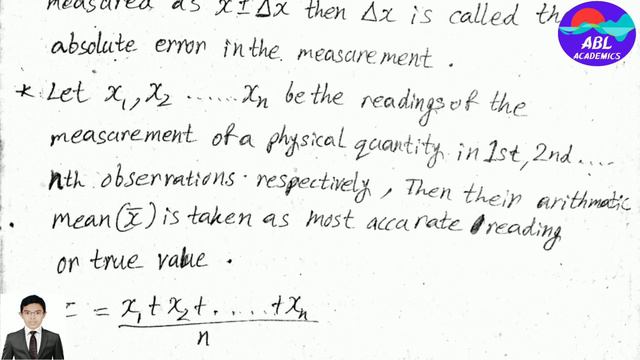 measured as x ± Δx then Δx is called th
absolute error in the measurement.
* Let x₁, x₂ ...... xₙ be the readings of the
measurement of a physical quantity in 1st, 2nd....
nth observations respectively, Then their arithmatic
mean (x̄) is taken as most accurate reading
or true value.
= x₁ + x₂ + ..... + xₙ
n
ABL
ACADEMICS